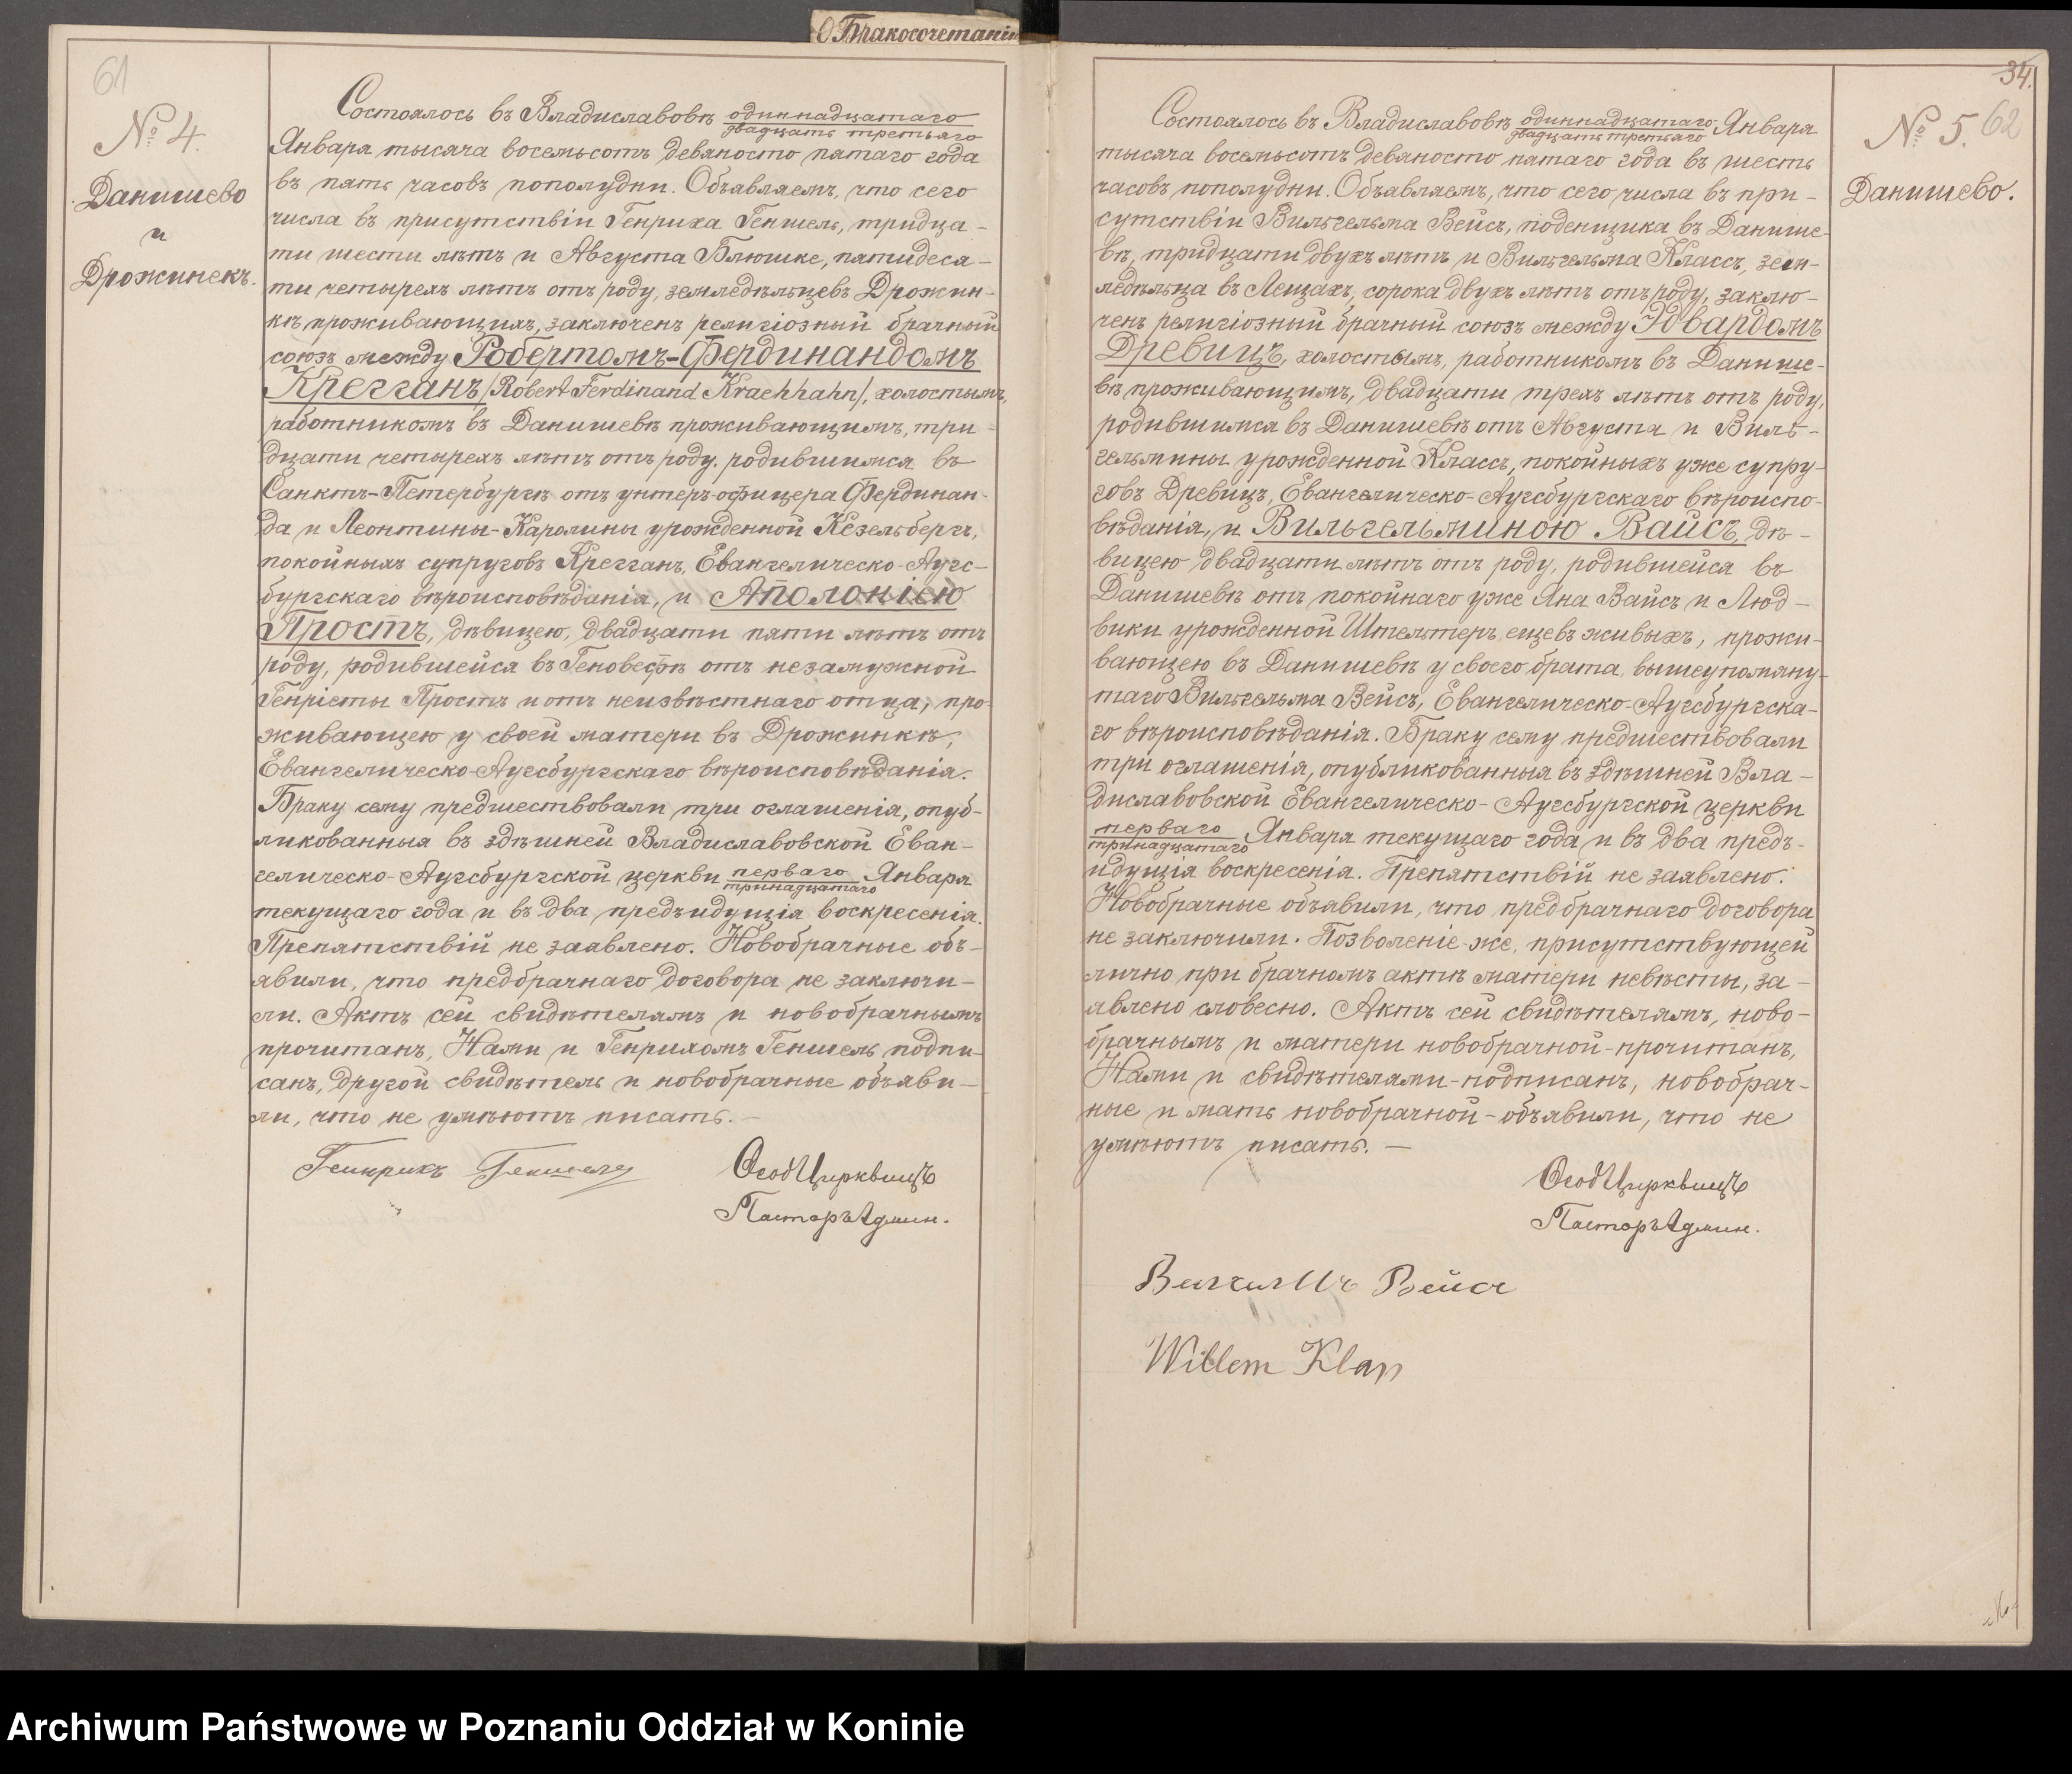 О Бракосочетанiи
61
№ 4.
Данишево
и
Дрожинекъ.
Состоялось въ Владиславовѣ одиннадцатаго
двадцать третьяго
Января тысяча восемьсотъ девяносто пятаго года
въ пять часовъ пополудни. Объявляемъ, что сего
числа въ присутствіи Генриха Геншель, тридца-
ти шести лѣтъ и Августа Блюшке, пятидеся-
ти четырехъ лѣтъ отъ роду, земледѣльцевъ Дрожин-
кѣ проживающихъ, заключенъ религіозный брачный
союзъ между Робертомъ-Фердинандомъ
Крегганъ /Robert Ferdinand Kraehhahn/, холостымъ,
работникомъ въ Данишевѣ проживающимъ, три-
дцати четырехъ лѣтъ отъ роду, родившимся въ
Санктъ-Петербургѣ отъ унтеръ-офицера Фердинан-
да и Леонтины-Каролины урожденной Кезельбергъ,
покойныхъ супруговъ Крегганъ, Евангелическо-Аугс-
бургскаго вѣроисповѣданія, и Аполоніею
Простъ, дѣвицею, двадцати пяти лѣтъ отъ
роду, родившейся въ Геновефѣ отъ незамужной
Генріеты Простъ и отъ неизвѣстнаго отца, про-
живающею у своей матери въ Дрожинкѣ,
Евангелическо-Аугсбургскаго вѣроисповѣданія.
Браку сему предшествовали три оглашенія, опуб-
ликованныя въ здѣшней Владиславовской Еван-
гелическо-Аугсбургской церкви перваго Января
тринадцатаго
текущаго года и въ два предъидущія воскресенія.
Препятствій не заявлено. Новобрачные объ-
явили, что предбрачнаго договора не заключи-
ли. Актъ сей свидѣтелямъ и новобрачнымъ
прочитанъ, Нами и Генрихомъ Геншель подпи-
санъ, другой свидѣтель и новобрачные объяви-
ли, что не умѣютъ писать.—
Генрихъ Геншель
Пасторъ Админ.
34.
62
№ 5.
Данишево.
Состоялось въ Владиславовѣ одиннадцатаго Января
двадцать третьяго
тысяча восемьсотъ девяносто пятаго года въ шесть
часовъ пополудни. Объявляемъ, что сего числа въ при-
сутствіи Вильгельма Вейсъ, поденщика въ Данише-
вѣ, тридцати двухъ лѣтъ и Вильгельма Классъ, зем-
ледѣльца въ Лещахъ, сорока двухъ лѣтъ отъ роду, заклю-
ченъ религіозный брачный союзъ между Эдвардомъ
Древицъ, холостымъ, работникомъ въ Данише-
вѣ проживающимъ, двадцати трехъ лѣтъ отъ роду,
родившимся въ Данишевѣ отъ Августа и Виль-
гельмины урожденной Классъ, покойныхъ уже супру-
говъ Древицъ, Евангелическо-Аугсбургскаго вѣроиспо-
вѣданія, и Вильгельминою Вайсъ, дѣ-
вицею двадцати лѣтъ отъ роду, родившейся въ
Данишевѣ отъ покойнаго уже Яна Вайсъ и Люд-
вики урожденной Штельтеръ, еще въ живыхъ, прожи-
вающею въ Данишевѣ у своего брата, вышеупомяну-
таго Вильгельма Вейсъ, Евангелическо-Аугсбургска-
го вѣроисповѣданія. Браку сему предшествовали
три оглашенія, опубликованныя въ здѣшней Вла-
диславовской Евангелическо-Аугсбургской церкви
перваго Января текущаго года и въ два предъ-
тринадцатаго
идущія воскресенія. Препятствій не заявлено.
Новобрачные объявили, что предбрачнаго договора
не заключили. Позволеніе-же, присутствующей
лично при брачномъ актѣ матери невѣсты, за-
явлено словесно. Актъ сей свидѣтелямъ, ново-
брачнымъ и матери новобрачной-прочитанъ,
Нами и свидѣтелями-подписанъ, новобрач-
ные и мать новобрачной-объявили, что не
умѣютъ писать.—
Пасторъ Админ.
Вейсъ
Willem Klaß
Archiwum Państwowe w Poznaniu Oddział w Koninie